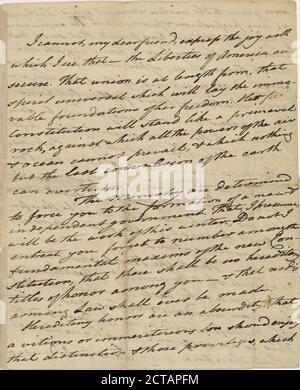 I cannot, my dear friend, express the joy with
which I see that — the Liberties of America are
secure. That union is at length form, that
spirit universal which will lay the immo-
vable foundations of her freedom. Her
Constitution will stand like a primaeval
rock, against which all the powers of the air
& ocean cannot prevail, & which nothing
but the last convulsion of the earth
can overthrow.
The Ministry are determined
to force you to the formation of a new &
independent government. That I presume
will be the work of this winter. Do not I
entreat you forget to number among the
fundamental maxims of the new Con-
stitution, that there shall be no hereditary
titles of honor among you — & that no dis-
arming Law shall ever be made.
Hereditary honors are an absurdity, that
a vitious or unmeritorious Son should enjoy
that distinction & those privileges, which
alamy
Image ID: 2CTAPFM
www.alamy.com